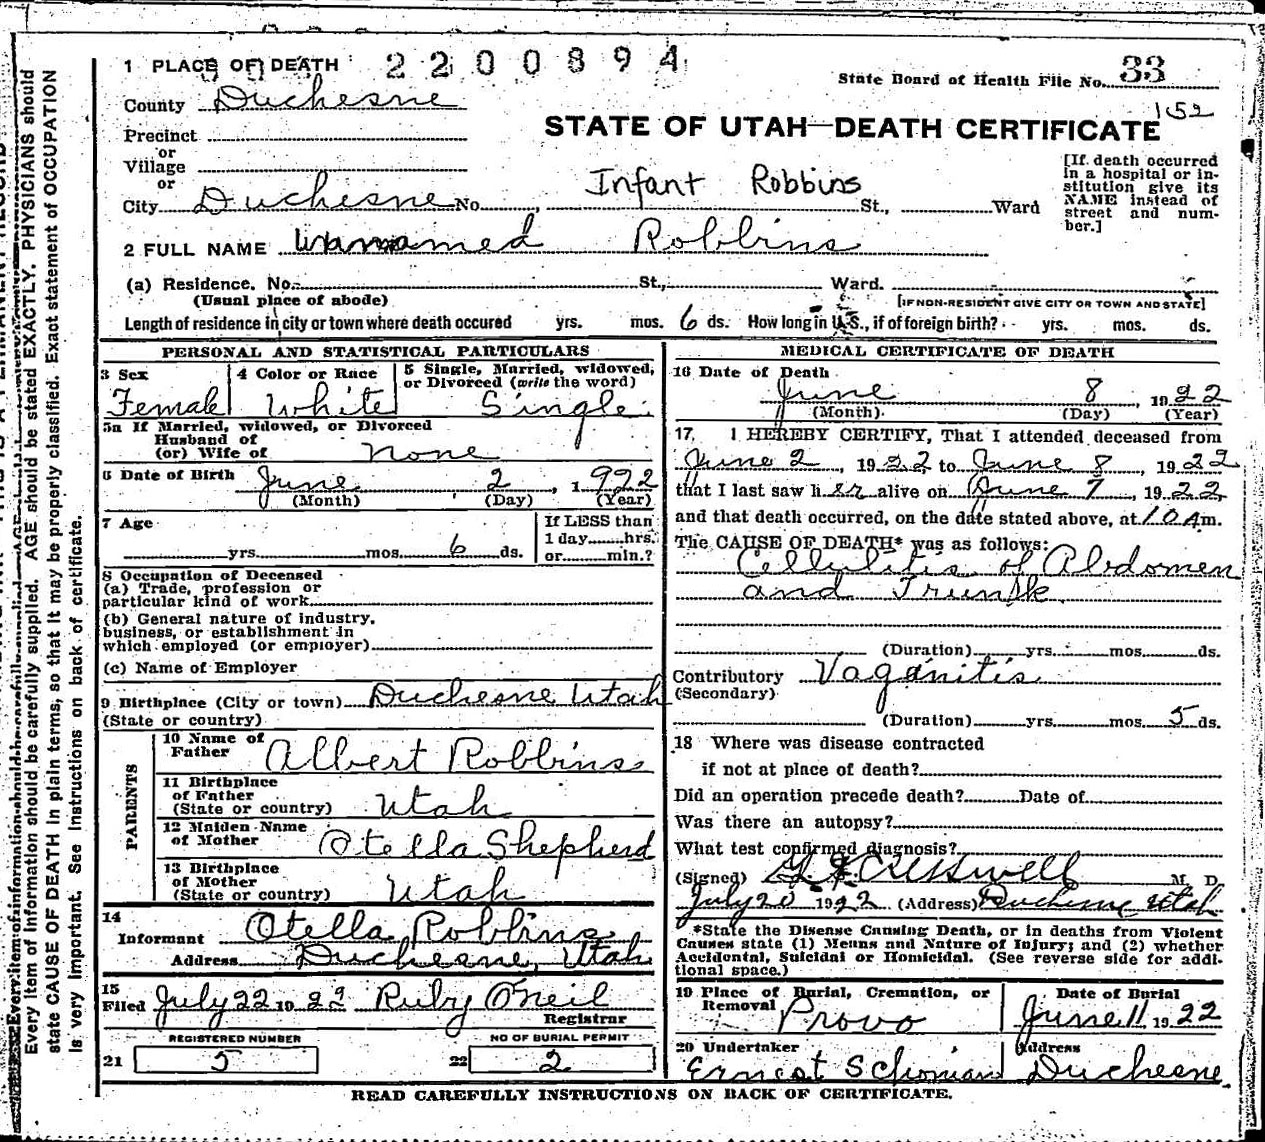 1 PLACE OF DEATH 2200894
State Board of Health File No. 33
152
County Duchesne
STATE OF UTAH—DEATH CERTIFICATE
Precinct
or
Village
or
Infant Robbins
City Duchesne No. , St., Ward
[If death occurred
in a hospital or in-
stitution give its
NAME instead of
street and num-
ber.]
2 FULL NAME Unnamed Robbins
(a) Residence. No. St., Ward.
(Usual place of abode)
[IF NON-RESIDENT GIVE CITY OR TOWN AND STATE]
Length of residence in city or town where death occured yrs. mos. 6 ds. How long in U.S., if of foreign birth? yrs. mos. ds.
PERSONAL AND STATISTICAL PARTICULARS
3 Sex
Female
4 Color or Race
White
5 Single, Married, widowed,
or Divorced (write the word)
Single
5a If Married, widowed, or Divorced
Husband of
(or) Wife of None
6 Date of Birth June 2, 1922
(Month) (Day) (Year)
7 Age
yrs. mos. 6 ds.
If LESS than
1 day hrs.
or min.?
8 Occupation of Deceased
(a) Trade, profession or
particular kind of work
(b) General nature of industry,
business, or establishment in
which employed (or employer)
(c) Name of Employer
9 Birthplace (City or town) Duchesne Utah
(State or country)
PARENTS
10 Name of
Father Albert Robbins
11 Birthplace
of Father
(State or country) Utah
12 Maiden Name
of Mother Otella Shepherd
13 Birthplace
of Mother
(State or country) Utah
14
Informant Otella Robbins
Address Duchesne, Utah
15
Filed July 22 1922 Ruby O'Neil
Registrar
REGISTERED NUMBER
21 5
NO OF BURIAL PERMIT
22 2
MEDICAL CERTIFICATE OF DEATH
16 Date of Death
June 8, 1922
(Month) (Day) (Year)
17. I HEREBY CERTIFY, That I attended deceased from
June 2, 1922 to June 8, 1922
that I last saw her alive on June 7, 1922,
and that death occurred, on the date stated above, at 10 Am.
The CAUSE OF DEATH* was as follows:
Cellulitis of Abdomen
and Trunk
(Duration) yrs. mos. ds.
Contributory Vaganitis
(Secondary)
(Duration) yrs. mos. 5 ds.
18 Where was disease contracted
if not at place of death?
Did an operation precede death? Date of
Was there an autopsy?
What test confirmed diagnosis?
(Signed) Cresswell M. D.
July 20 1922 (Address) Duchesne Utah
*State the Disease Causing Death, or in deaths from Violent
Causes state (1) Means and Nature of Injury; and (2) whether
Accidental, Suicidal or Homicidal. (See reverse side for addi-
tional space.)
19 Place of Burial, Cremation, or
Removal Provo
Date of Burial
June 11 1922
20 Undertaker
Ernest
Address
Duchesne
READ CAREFULLY INSTRUCTIONS ON BACK OF CERTIFICATE.
Every item of information should be carefully supplied. AGE should be stated EXACTLY. PHYSICIANS should
state CAUSE OF DEATH in plain terms, so that it may be properly classified. Exact statement of OCCUPATION
is very important. See instructions on back of certificate.